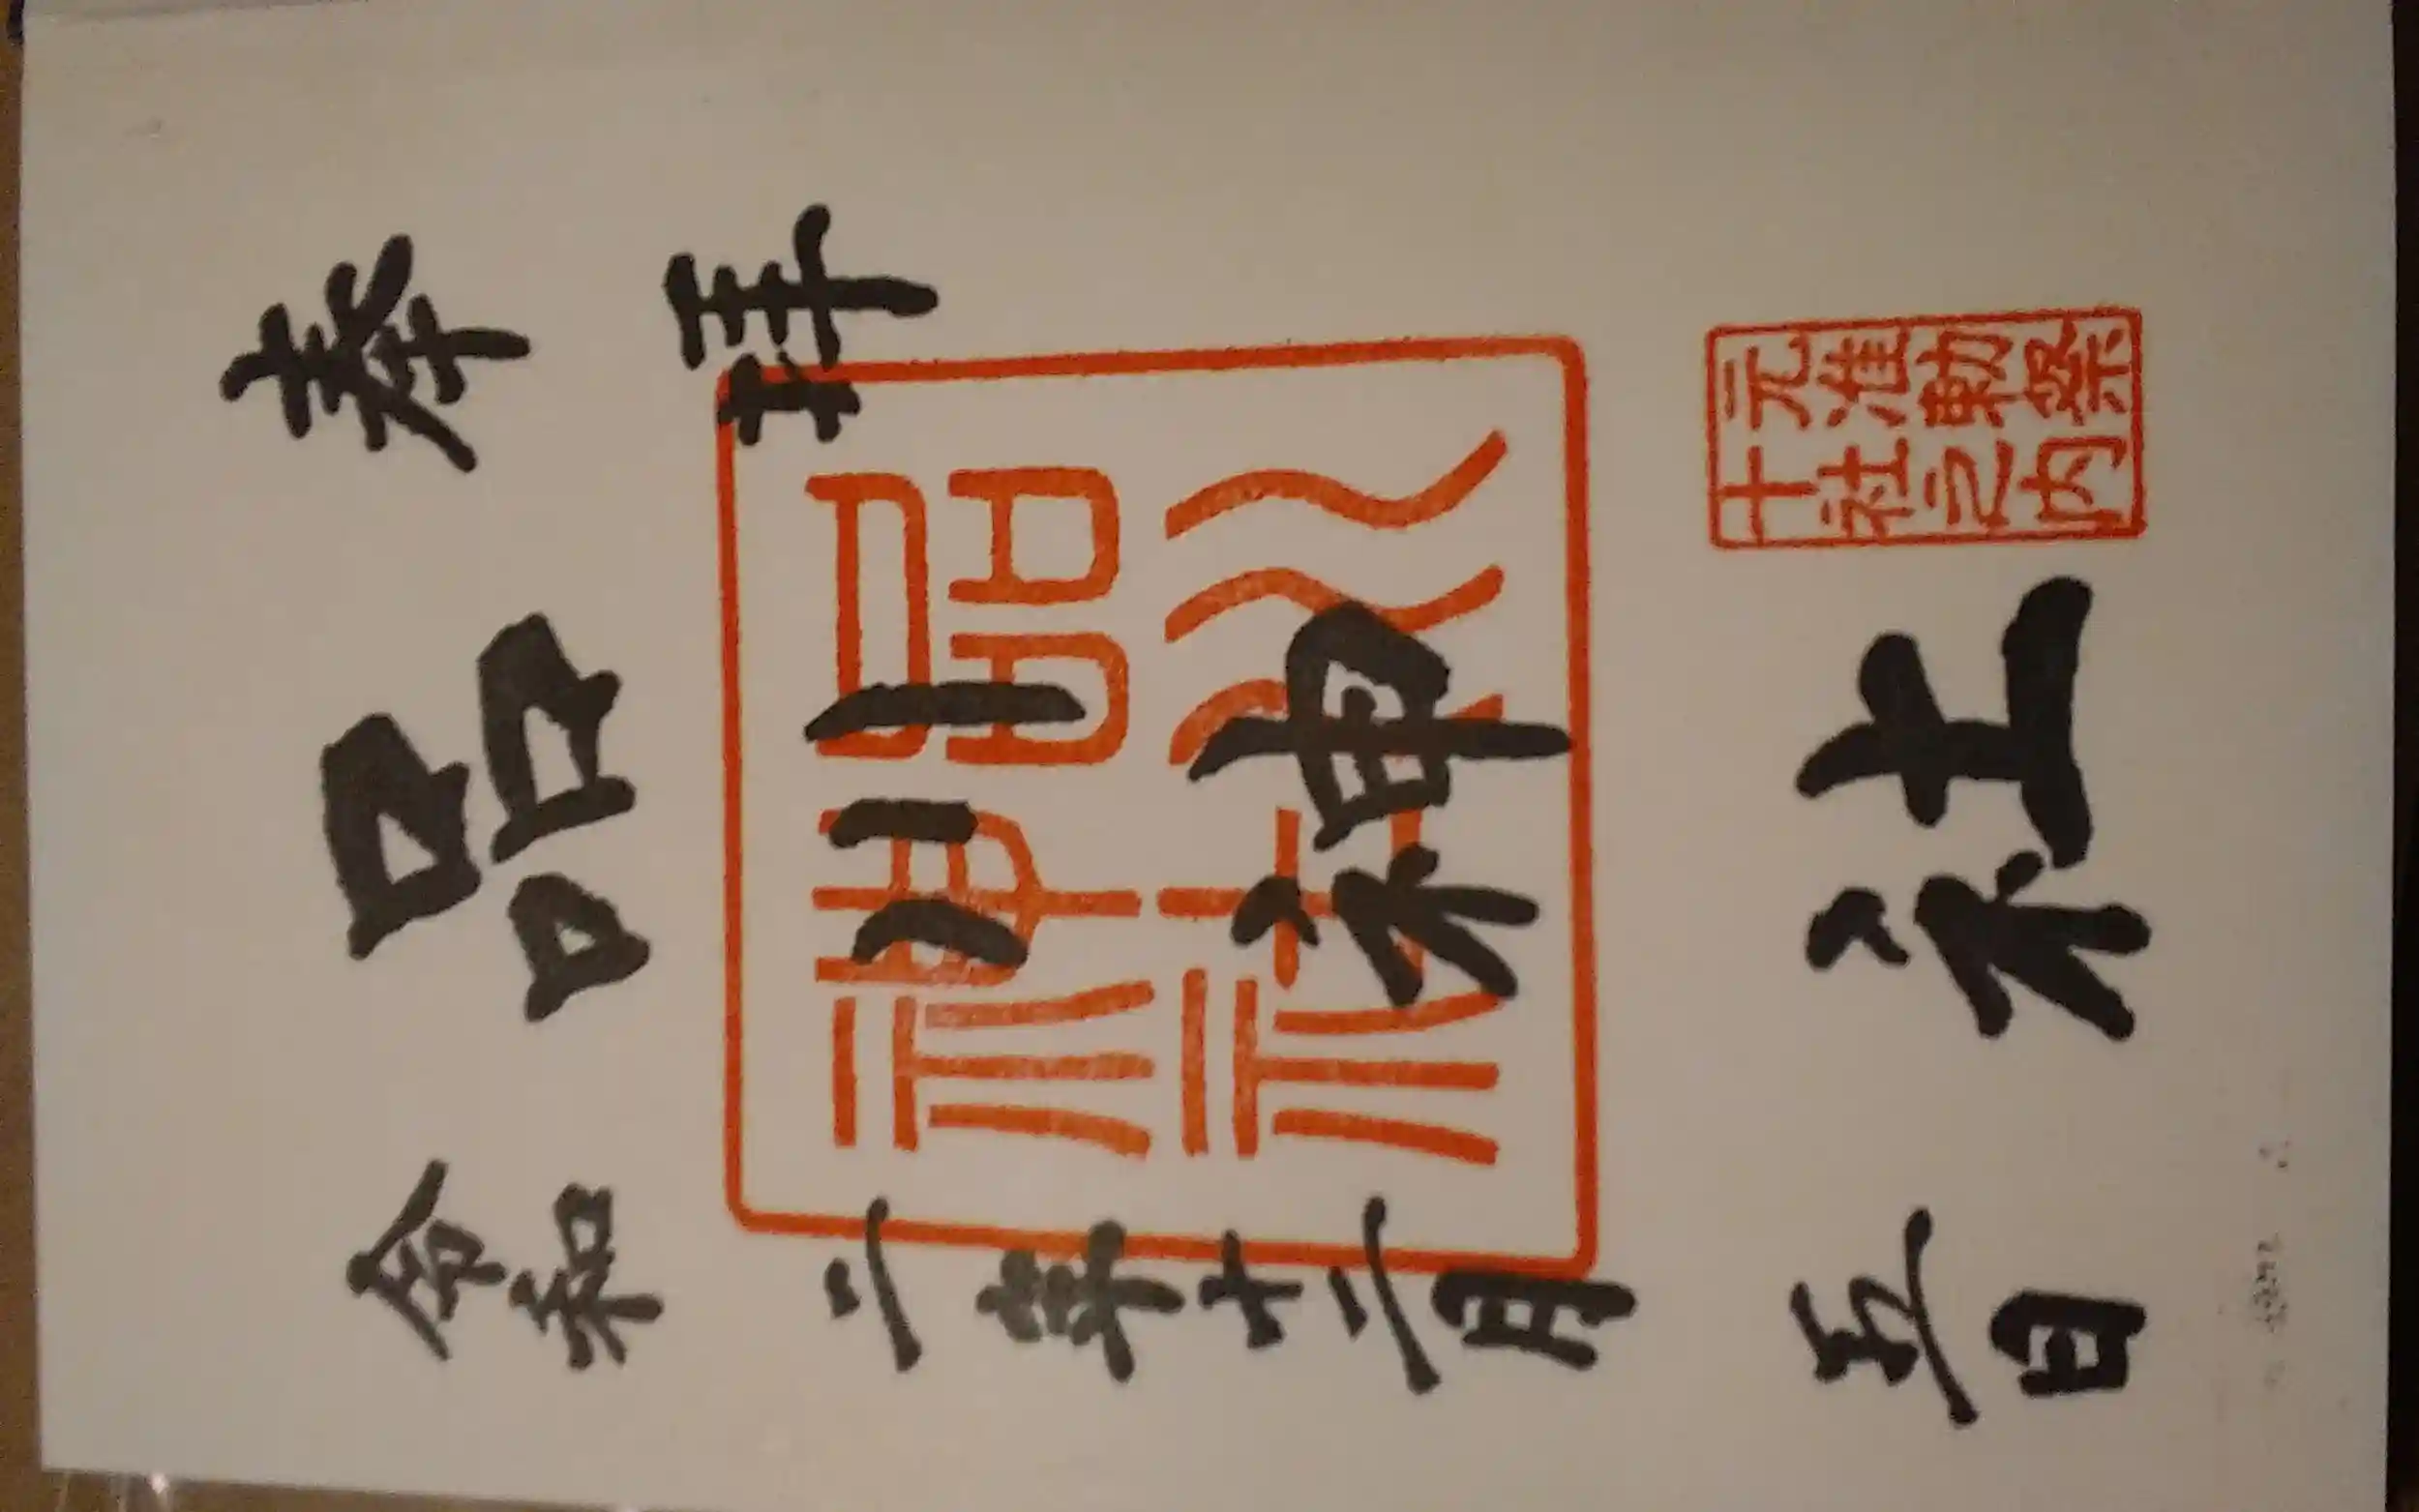 奉拝
元准勅祭
十社之内
品川神社
品川神社
令和二年十二月五日